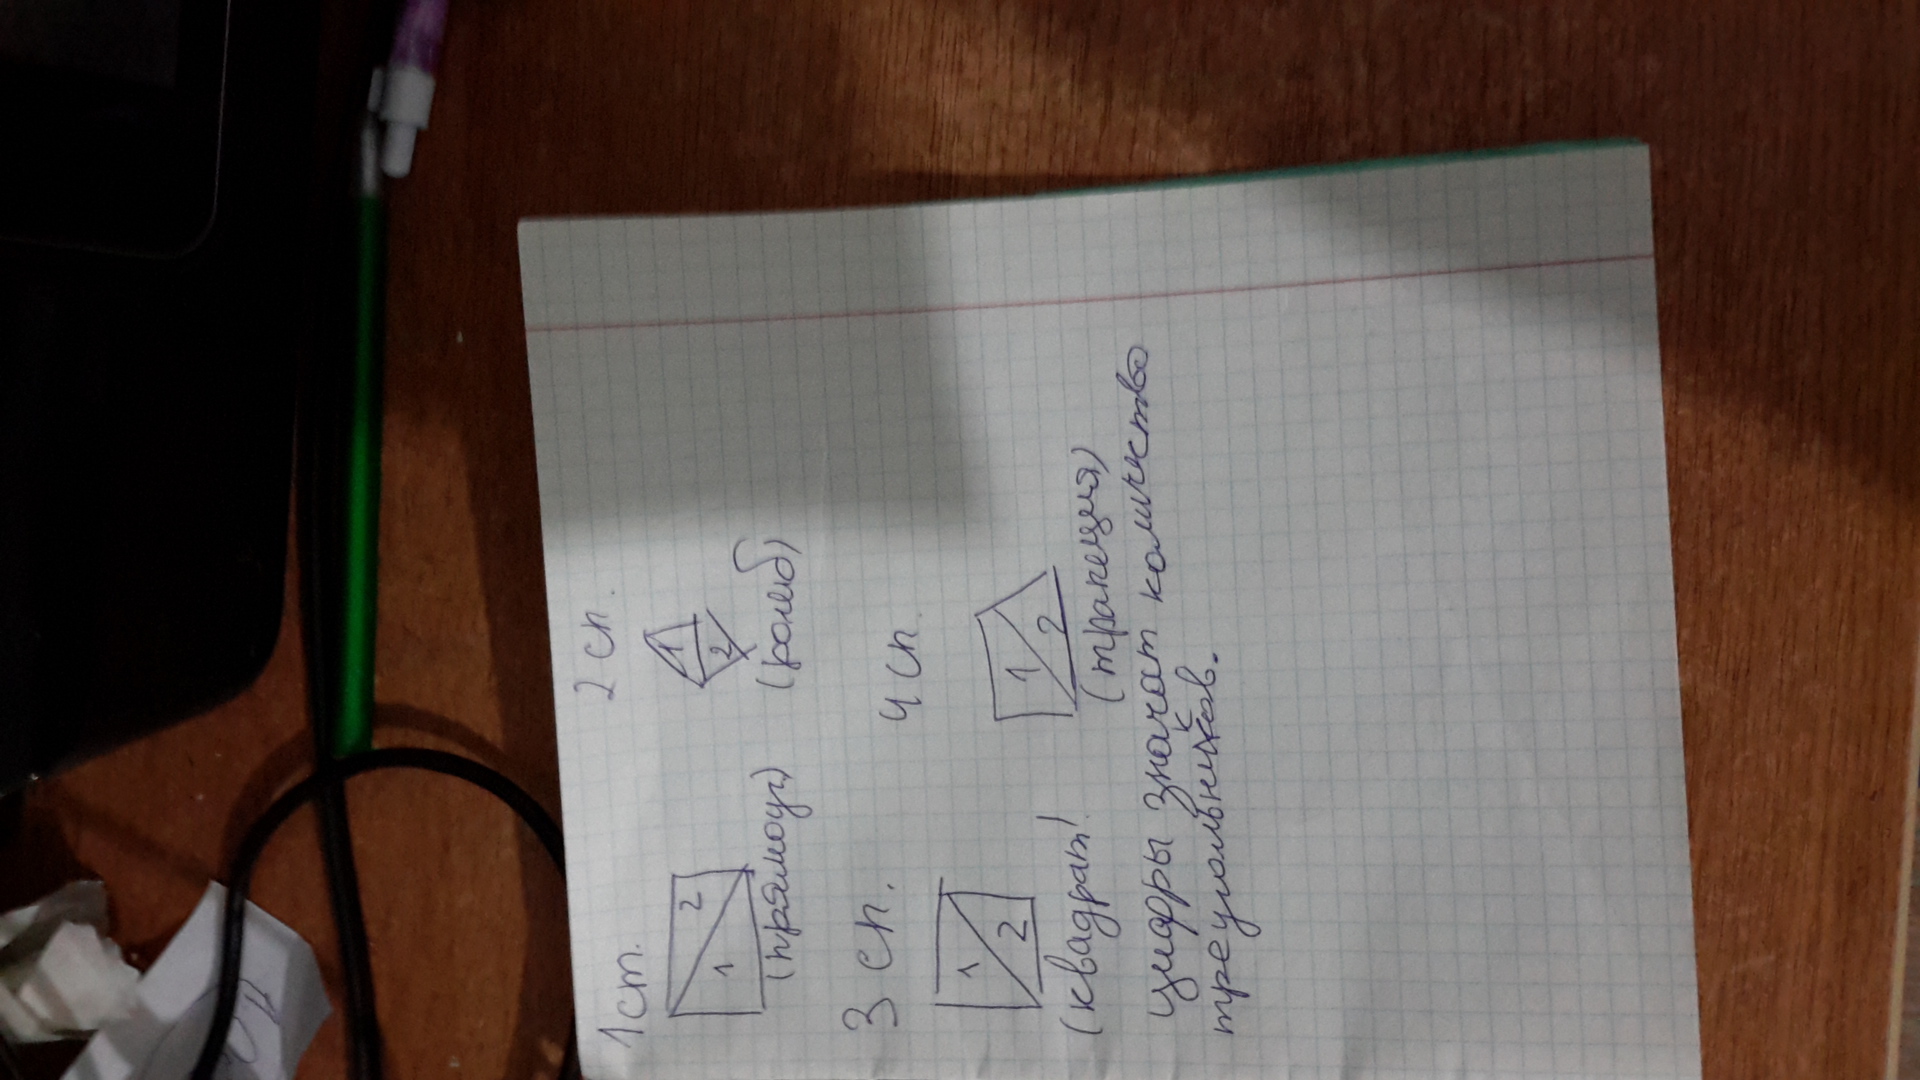 1 ст.
2 сп.
1
2
1
2
(прямоуг)
(ромб)
3 сп.
4 сп.
1
2
1
2
(квадрат)
(трапеция)
цифры значат количество
треугольников.